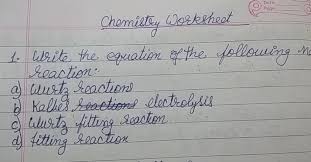 Date
Page
Chemistry Worksheet
1. Write the equation of the following
reaction:-
a) Wurtz reactions
b) Kalbes reactions electrolysis
c) Wurtz fitting reaction
d) fitting reaction